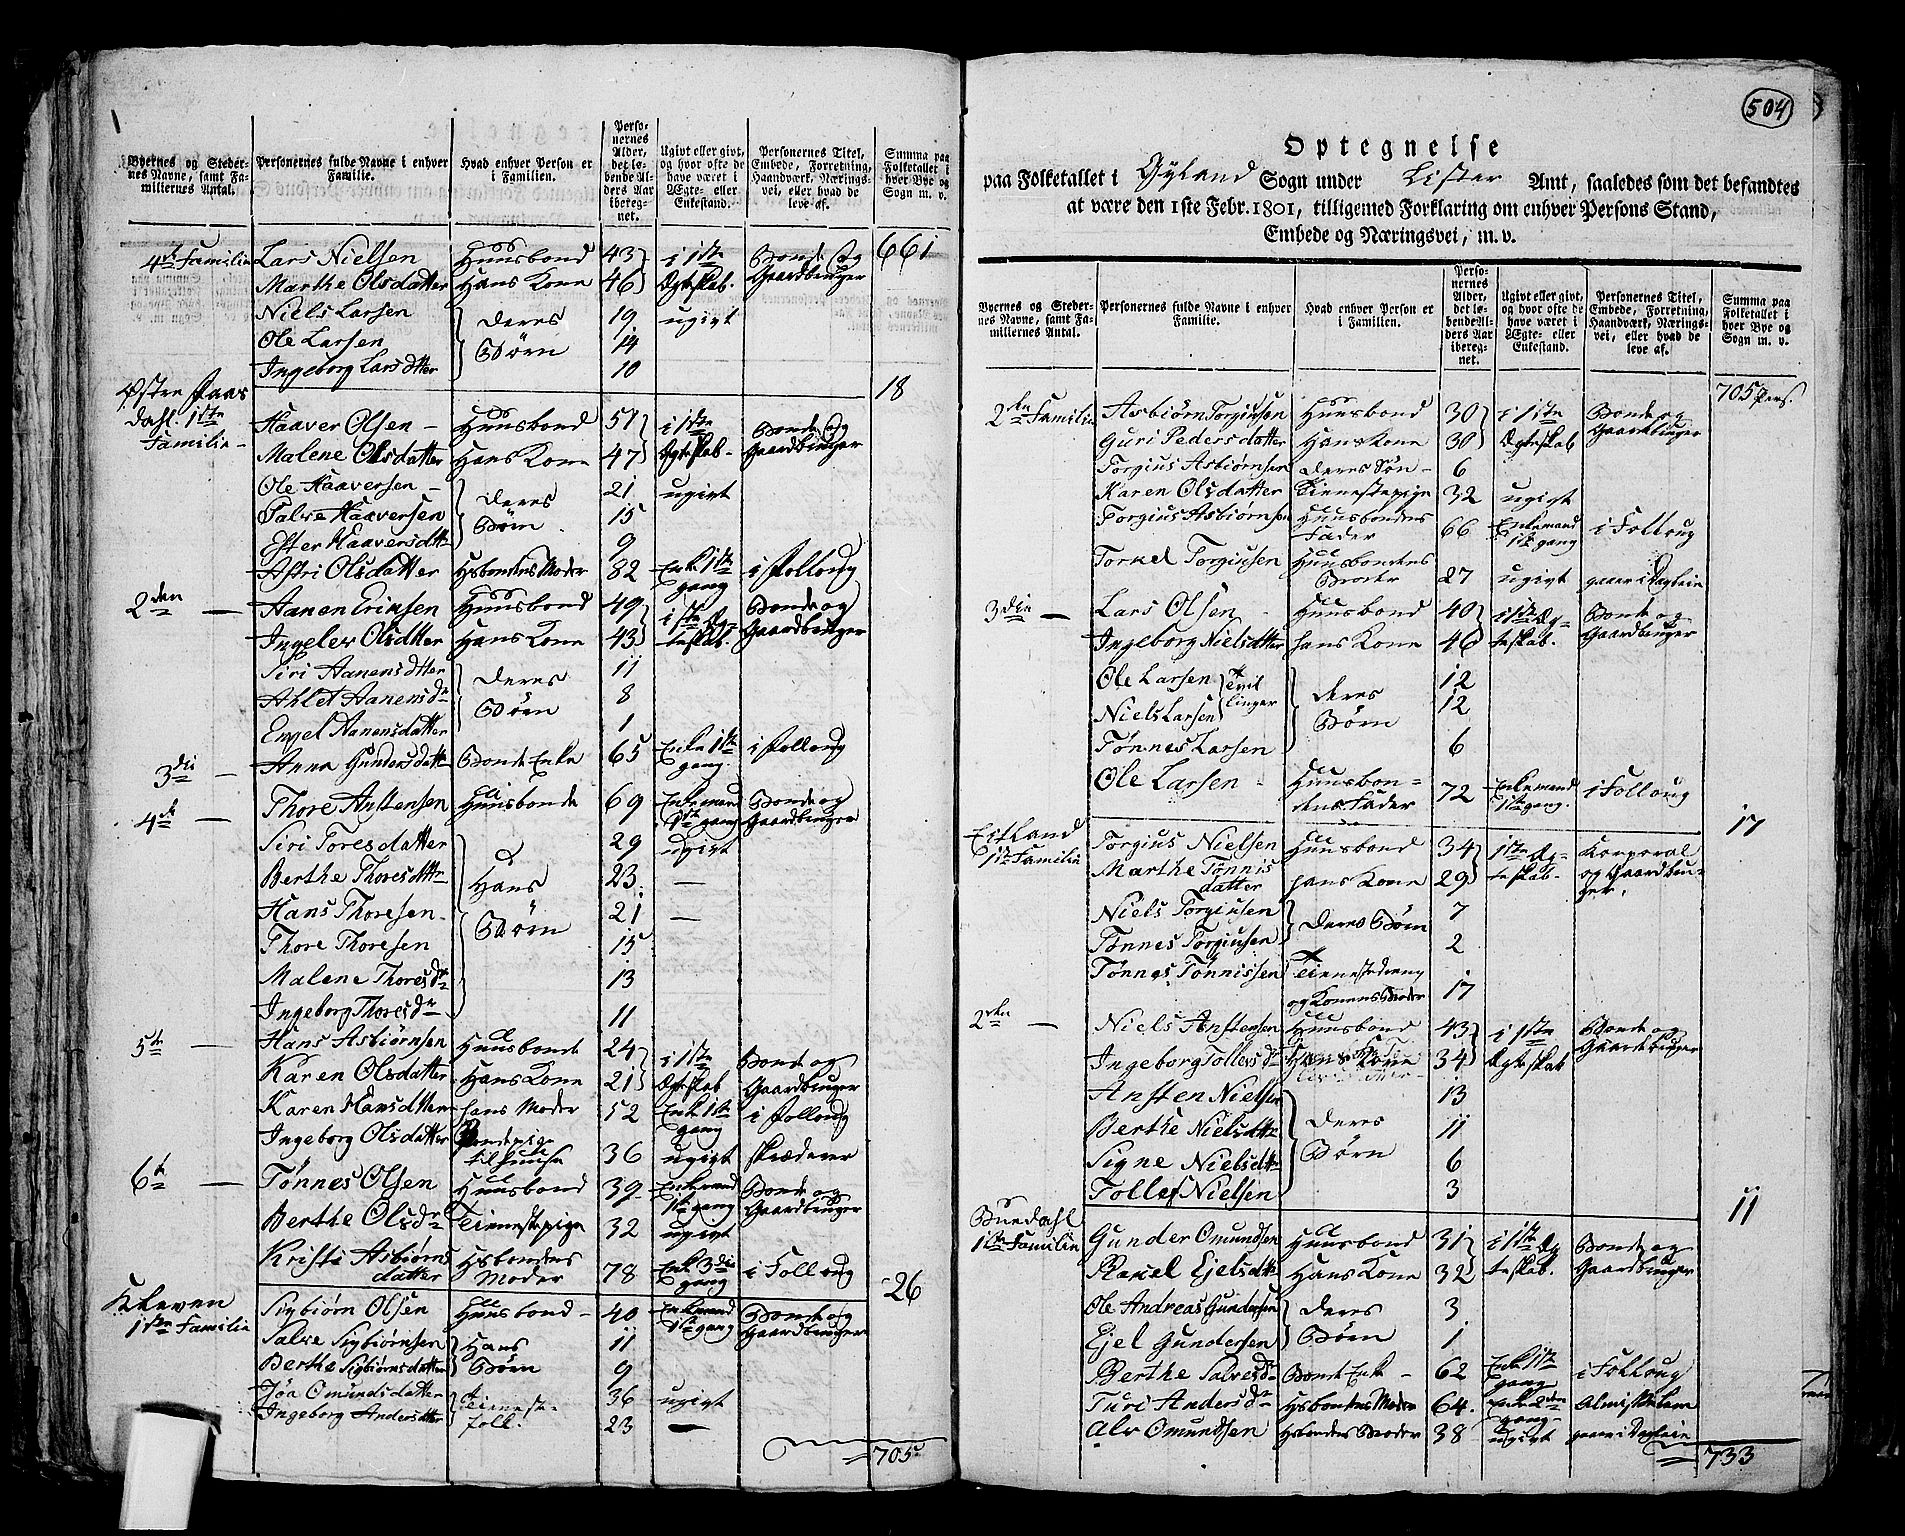 Byernes og Steder-
nes Navne, samt Fa-
miliernes Antal.
Personernes fulde Navne i enhver
Familie.
Hvad enhver Person er
i Familien.
Perso-
nernes
Alder,
det lø-
bende Al-
ders Aar
ibereg-
net.
Ugivt eller givt,
og hvor ofte de
have været i
Ægte- eller
Enkestand.
Personernes Titel,
Embede, Forretning,
Haandværk, Nærings-
vei, eller hvad de
leve af.
Summa paa
Folketallet i
hver Bye og
Sogn m. v.
4de Familie Lars Nielsen Huusbond 43 i 1ste Bonde og 661
Marthe Olsdatter Hans Kone 46 Ægteskab. Gaardbruger
Niels Larsen deres 19 ugivt
Ole Larsen Børn 14
Ingeborg Larsdtter 10
Østre 18
dahl. 1ste Haaver Olsen - Huusbond 51 i 1ste Bonde og
Familie - Malene Olsdatter Hans Kone 47 Ægteskab - Gaardbruger
Ole Haaversen - deres 21 ugivt
Salve Haaversen Børn 15
Ester Haaversdtr 9
Astri Olsdatter Hsbondens Moder 82 Enke 1ste gang i Folloug
2den - Aanen Erinsen Huusbond 49 i 1ste Æg- Bonde og
Ingeler Olsdatter Hans Kone 43 teskab. Gaardbruger
Siri Aanensdtter deres 11
Ahlet Aanensdr Børn 8
Engel Aanensdatter 1
3die - Anna Gundersdattr Bonde Enke 65 Enke 1ste gang. i Follong
4de - Thore Anstensen Huusbonde 69 Enkemand 1ste gang Bonde og Gaardbruger
Siri Toresdatter Hans 29 ugivt
Berthe Thoresdttr Børn 23. -
Hans Thoresen - 21 -
Thore Thoresen 15
Malene Thoresdr 13
Ingeborg Thoresdr 11
5te - Hans Asbiørnsen Huusbonde 24 i 1ste Bonde og
Karen Olsdatter Hans Kone 21 Ægteskab Gaardbruger
Karen Hansdatter hans Moder 52 Enke 1ste gang i Follong
Ingeborg Olsdatter til huuse 36 ugivt skræderer
6te - Tønnes Olsen Huusbond 39 Enkemand 1ste gang Bonde og Gaardbruger
Berthe Olsdr Tienestepige 32 ugivt
Kristi Asbiørns datter Hsbondens Moder 78 Enke 3die gang i Follong 26
Kleven Sigbiørn Olsen Huusbond - 40 Enkemand Bonde og
1ste Familie Salve Sigbiørnsen Hans 11 1ste gang Gaardbruger
Berthe Sigbiørnsdatter Børn 9
Jøa Omundsdatter Tieneste- 36 ugivt
Ingeborg Andersdatter folk. 23 -
705
504
Optegnelse
paa Folketallet i Gyland Sogn under Lister Amt, saaledes som det befandtes
at være den 1ste Febr. 1801, tilligemed Forklaring om enhver Persons Stand,
Embede og Næringsvei, m. v.
Byernes og Steder-
nes Navne, samt Fa-
miliernes Antal.
Personernes fulde Navne i enhver
Familie.
Hvad enhver Person er
i Familien.
Perso-
nernes
Alder,
det lø-
bende Al-
ders Aar
ibereg-
net.
Ugivt eller givt,
og hvor ofte de
have været i
Ægte- eller
Enkestand.
Personernes Titel,
Embede, Forretning,
Haandværk, Nærings-
vei, eller hvad de
leve af.
Summa paa
Folketallet i
hver Bye og
Sogn m. v.
705 Pers.
2den Familie Asbiørn Torgiusen Huusbond 30 i 1ste Bonde og
Guri Pedersdatter Hans Kone 30 Ægteskab Gaardbruger
Torgius Asbiørnsen deres Søn - 6
Karen Olsdatter Tienestepige 32 ugivt
Torgius Asbiørnsen Huusbondens Fader 66 Enkemand 1ste gang i Follong
Torkel Torgiusen Huusbondens Broder 27 ugivt gaar i Dagleie
3die - Lars Olsen - Huusbond 40 i 1ste Æg- Bonde og
Ingeborg Nielsdatter hans Kone 46 teskab. Gaardbruger
Ole Larsen tvil deres 12
Niels Larsen linger Børn 12
Tønnes Larsen 6
Ole Larsen - Huusbon- dens Fader 72 Enkemand 1ste gang. i Follong
17
Eitland Torgius Nielsen Huusbond 34 1ste Æg- Korporal
1ste Familie Marthe Tønnis datter hans Kone 29 teskab. og Gaardbru- ger.
Niels Torgiusen deres Børn 7
Tønnes Torgiusen 2
Tønnes Tønnissen Tienestedreng og Konens Broder 17
2den - Niels Anstensen Huusbond 43 i 1ste Bonde og
Ingeborg Tollefsdr Hans Kone 34 Ægteskab Gaardbruger
Ansten Nielsen deres 13
Berthe Nielsdttr Børn 11
Signe Nielsdttr 6
Tollef Nielsen 3
11
Buedahl Gunder Omundsen Huusbond 31 i 1ste Æg Bonde og
1ste Familie Rakel Ejelsdttr Hans Kone 32 teskab. Gaardbruger
Ole Andreas Gundersen deres 3
Ejel Gundersen Børn 1
Berthe Salvesdr Bonde Enke - 62 Enke 1ste gang i Follong
Turi Andersdr Hsbondens Moder 64. Enke 2den gang - Almisselem
Alv Omundsen Hsbondens Broder 38 ugivt gaar i Dagleie
733